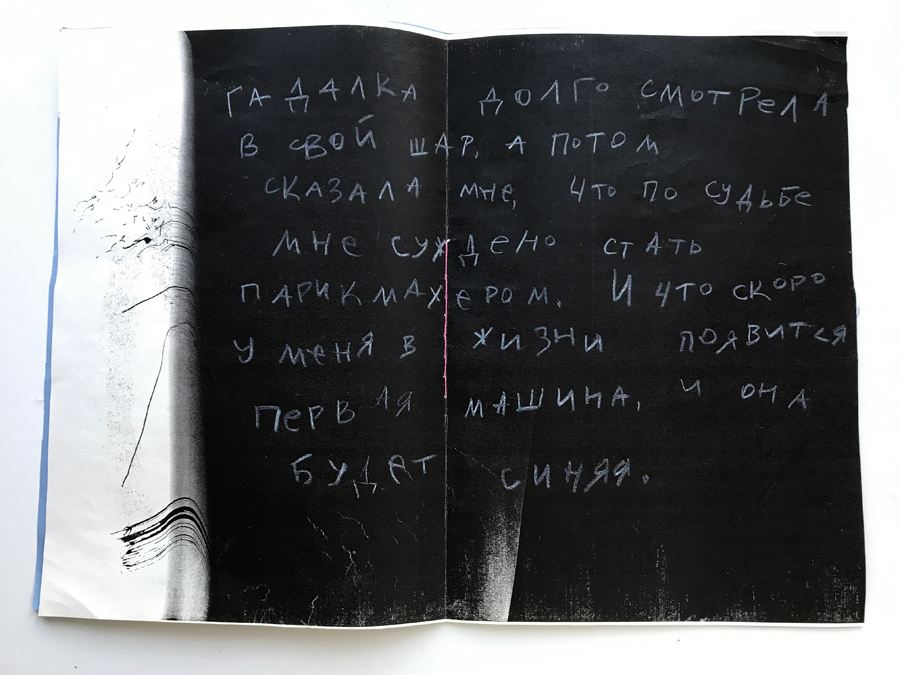 ГАДАЛКА ДОЛГО СМОТРЕЛА
В СВОЙ ШАР, А ПОТОМ
СКАЗАЛА МНЕ, ЧТО ПО СУДЬБЕ
МНЕ СУЖДЕНО СТАТЬ
ПАРИКМАХЕРОМ. И ЧТО СКОРО
У МЕНЯ В ЖИЗНИ ПОЯВИТСЯ
ПЕРВАЯ МАШИНА, И ОНА
БУДАТ СИНЯЯ.